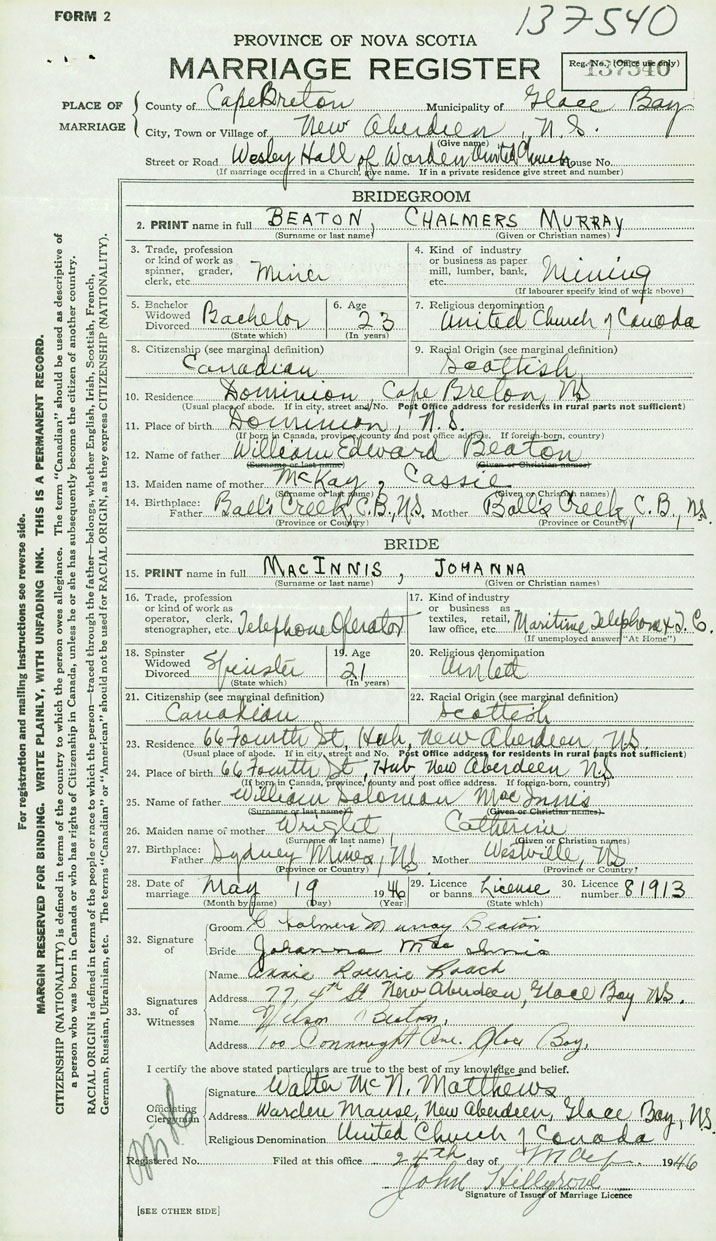 FORM 2
137540
PROVINCE OF NOVA SCOTIA
MARRIAGE REGISTER
Reg. No. (Office use only)
137540
PLACE OF MARRIAGE
County of Cape Breton Municipality of Glace Bay
City, Town or Village of New Aberdeen, N.S.
(Give name)
Street or Road Wesley Hall of Warden United Church House No.
(If marriage occurred in a Church, give name. If in a private residence give street and number)
BRIDEGROOM
2. PRINT name in full BEATON, CHALMERS MURRAY
(Surname or last name) (Given or Christian names)
3. Trade, profession or kind of work as spinner, grader, clerk, etc. Miner
4. Kind of industry or business as paper mill, lumber, bank, etc. Mining
(If labourer specify kind of work above)
5. Bachelor Widowed Divorced Bachelor (State which)
6. Age 23 (In years)
7. Religious denomination United Church of Canada
8. Citizenship (see marginal definition) Canadian
9. Racial Origin (see marginal definition) Scottish
10. Residence Dominion, Cape Breton, NS
(Usual place of abode. If in city, street and No. Post Office address for residents in rural parts not sufficient)
11. Place of birth Dominion, N.S.
(If born in Canada, province, county and post office address. If foreign-born, country)
12. Name of father William Edward Beaton
(Surname or last name) (Given or Christian names)
13. Maiden name of mother McKay, Cassie
(Surname or last name) (Given or Christian names)
14. Birthplace: Father Balls Creek, C.B., N.S. Mother Balls Creek, C.B., NS
(Province or Country) (Province or Country)
BRIDE
15. PRINT name in full MACINNIS, JOHANNA
(Surname or last name) (Given or Christian names)
16. Trade, profession or kind of work as operator, clerk, stenographer, etc. Telephone Operator
17. Kind of industry or business as textiles, retail, law office, etc. Maritime Telephone & T. C.
(If unemployed answer "At Home")
18. Spinster Widowed Divorced Spinster (State which)
19. Age 21 (In years)
20. Religious denomination
21. Citizenship (see marginal definition) Canadian
22. Racial Origin (see marginal definition) Scottish
23. Residence 66 Fourth St, Hub, New Aberdeen, NS.
(Usual place of abode. If in city, street and No. Post Office address for residents in rural parts not sufficient)
24. Place of birth 66 Fourth St, Hub, New Aberdeen NS
(If born in Canada, province, county and post office address. If foreign-born, country)
25. Name of father William Soloman MacInnis
(Surname or last name) (Given or Christian names)
26. Maiden name of mother Wright, Catherine
(Surname or last name) (Given or Christian names)
27. Birthplace: Father Sydney Mines, NS Mother Westville, NS
(Province or Country) (Province or Country)
28. Date of marriage May 19 1946
(Month by name) (Day) (Year)
29. Licence or banns. License (State which)
30. Licence number 81913
32. Signature of
Groom Chalmers Murray Beaton
Bride Johanna MacInnis
33. Signatures of Witnesses
Name Annie Laurie Roach
Address 77, 4th St New Aberdeen, Glace Bay NS.
Name Wilson Beaton,
Address 100 Connought Ave. Glace Bay,
I certify the above stated particulars are true to the best of my knowledge and belief.
Officiating Clergyman
Signature Walter McN. Matthews
Address Warden Manse, New Aberdeen, Glace Bay, NS.
Religious Denomination United Church of Canada
Registered No. Filed at this office 24th day of May 1946
John Hillgrove
Signature of Issuer of Marriage Licence
[SEE OTHER SIDE]
For registration and mailing instructions see reverse side.
MARGIN RESERVED FOR BINDING. WRITE PLAINLY, WITH UNFADING INK. THIS IS A PERMANENT RECORD.
CITIZENSHIP (NATIONALITY) is defined in terms of the country to which the person owes allegiance. The term "Canadian" should be used as descriptive of
a person who was born in Canada or who has rights of Citizenship in Canada, unless he or she has subsequently become the citizen of another country.
RACIAL ORIGIN is defined in terms of the people or race to which the person—traced through the father—belongs, whether English, Irish, Scottish, French,
German, Russian, Ukrainian, etc. The terms "Canadian" or "American" should not be used for RACIAL ORIGIN, as they express CITIZENSHIP (NATIONALITY).